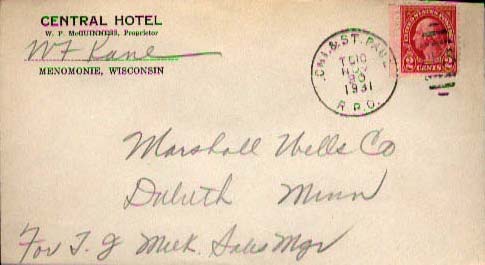 CENTRAL HOTEL
W. P. McGUINNESS, Proprietor
W F Kane
MENOMONIE, WISCONSIN
CHI. & ST. PAUL
TC10
NOV
20
1931
R.P.O.
2 CENTS 2
Marshall Wells Co
Duluth Minn
For T. G Meek. Sales Mgr